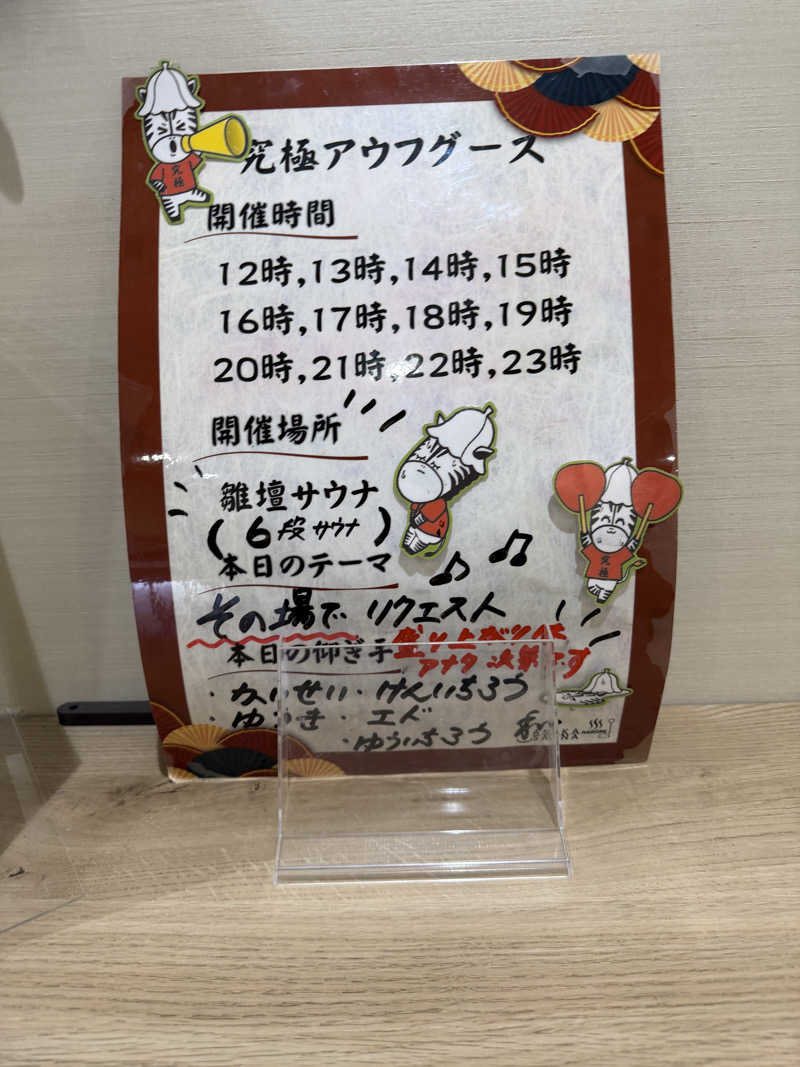 究極アウフグース
究極
開催時間
12時,13時,14時,15時
16時,17時,18時,19時
20時,21時,22時,23時
開催場所
雛壇サウナ
(6段サウナ)
本日のテーマ
究極
その場でリクエスト
盛り上がりは
本日の仰ぎ手
アナタ次第です
・かいせい・けんいちろう
・ゆうき・エド
・ゆういちろう